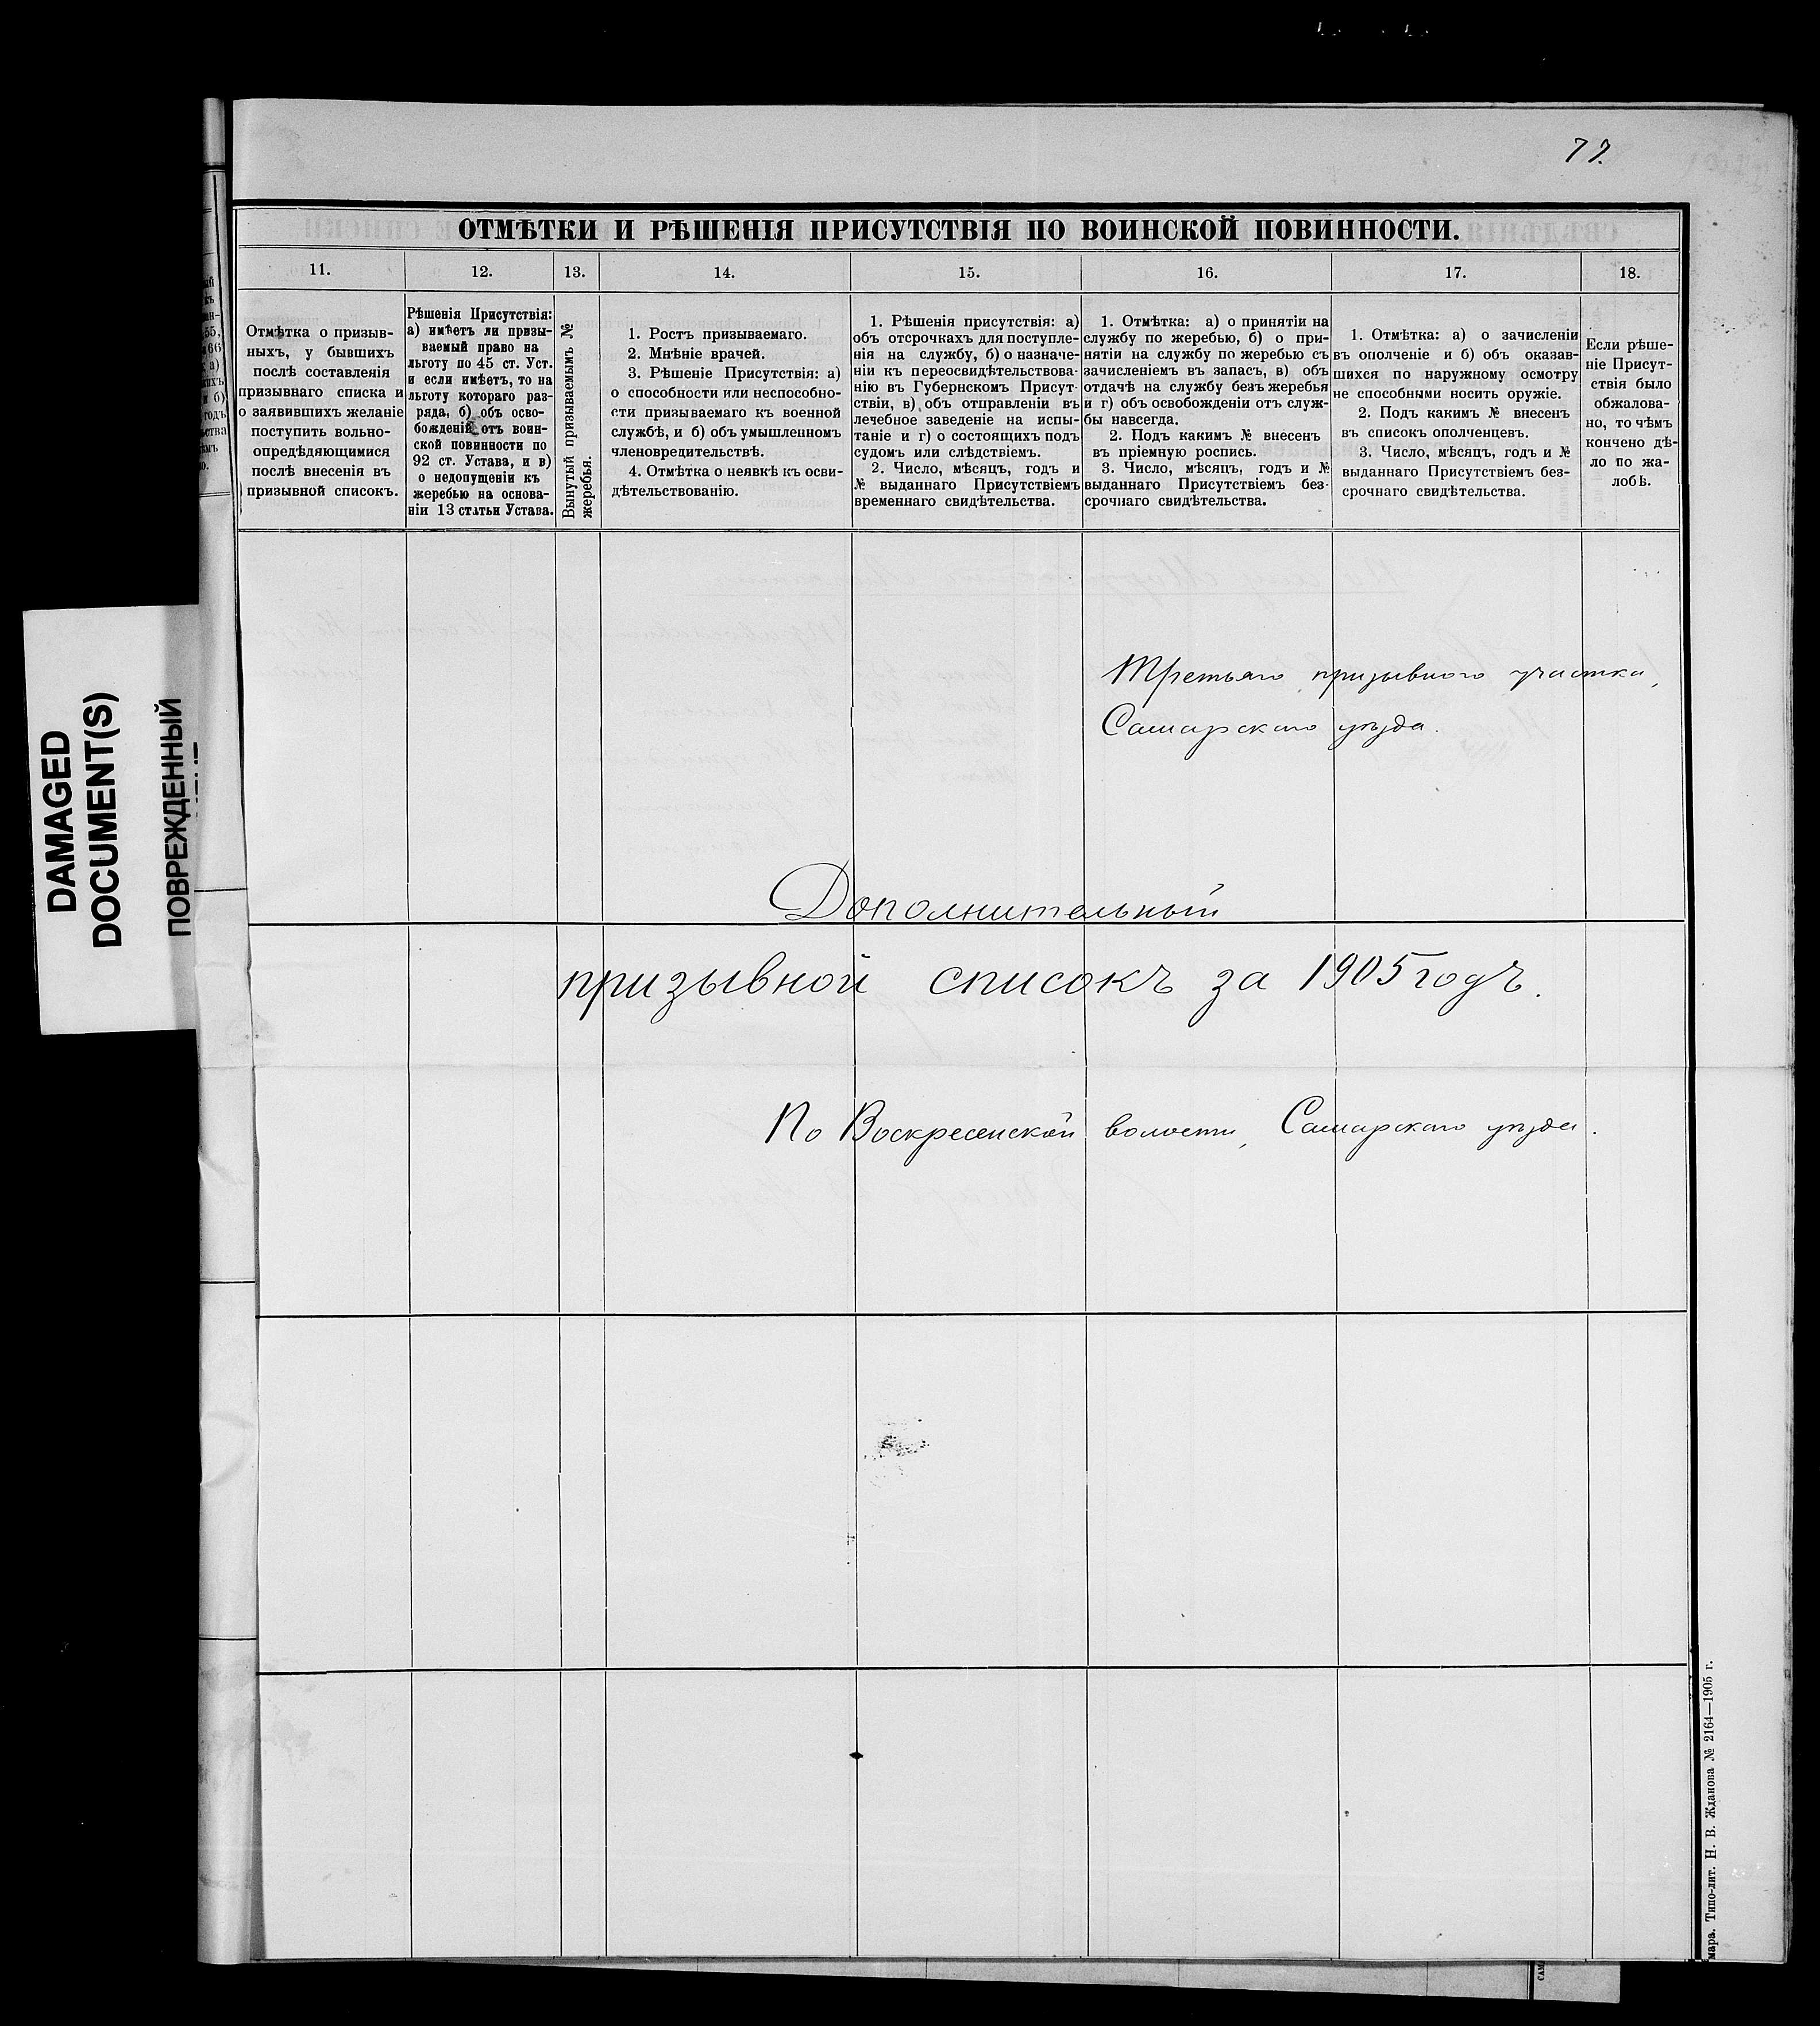 77.
ОТМѢТКИ И РѢШЕНІЯ ПРИСУТСТВІЯ ПО ВОИНСКОЙ ПОВИННОСТИ.
11.
12.
13.
14.
15.
16.
17.
18.
Отмѣтка о призыв-
ныхъ, у бывшихъ
послѣ составленія
призывнаго списка и
о заявившихъ желаніе
поступить вольно-
опредѣляющимися
послѣ внесенія въ
призывной списокъ.
Рѣшенія Присутствія:
а) имѣетъ ли призы-
ваемый право на
льготу по 45 ст. Уст.
и если имѣетъ, то на
льготу котораго раз-
ряда, б) объ осво-
божденій отъ воин-
ской повинности по
92 ст. Устава, и в)
о недопущеніи къ
жеребью на основа-
ніи 13 статьи Устава.
Вынутый призываемымъ №
жеребья.
1. Ростъ призываемаго.
2. Мнѣніе врачей.
3. Рѣшеніе Присутствія: а)
о способности или неспособно-
сти призываемаго къ военной
службѣ, и б) объ умышленномъ
членовредительствѣ.
4. Отмѣтка о неявкѣ къ осви-
дѣтельствованію.
1. Рѣшенія присутствія: а)
объ отсрочкахъ для поступле-
нія на службу, б) о назначе-
ніи къ переосвидѣтельствова-
нію въ Губернскомъ Присут-
ствіи, в) объ отправленіи въ
лечебное заведеніе на испы-
таніе и г) о состоящихъ подъ
судомъ или слѣдствіемъ.
2. Число, мѣсяцъ, годъ и
№ выданнаго Присутствіемъ
временнаго свидѣтельства.
1. Отмѣтка: а) о принятіи на
службу по жеребью, б) о при-
нятіи на службу по жеребью съ
зачисленіемъ въ запасъ, в) объ
отдачѣ на службу безъ жеребья
и г) объ освобожденіи отъ служ-
бы навсегда.
2. Подъ какимъ № внесенъ
въ пріемную роспись.
3. Число, мѣсяцъ, годъ и №
выданнаго Присутствіемъ без-
срочнаго свидѣтельства.
1. Отмѣтка: а) о зачисленіи
въ ополченіе и б) объ оказав-
шихся по наружному осмотру
не способными носить оружіе.
2. Подъ какимъ № внесенъ
въ списокъ ополченцевъ.
3. Число, мѣсяцъ, годъ и №
выданнаго Присутствіемъ без-
срочнаго свидѣтельства.
Если рѣше-
ніе Присут-
ствія было
обжалова-
но, то чѣмъ
кончено дѣ-
ло по жа-
лобѣ.
Третьяго призывного участка,
Самарскаго уѣзда.
Дополнительный
призывной списокъ за 1905 годъ.
По Воскресенской волости, Самарскаго уѣзда.
DAMAGED
DOCUMENT(S)
ПОВРЕЖДЕННЫЙ
мара. Типо-лит. Н. В. Жданова № 2164—1905 г.